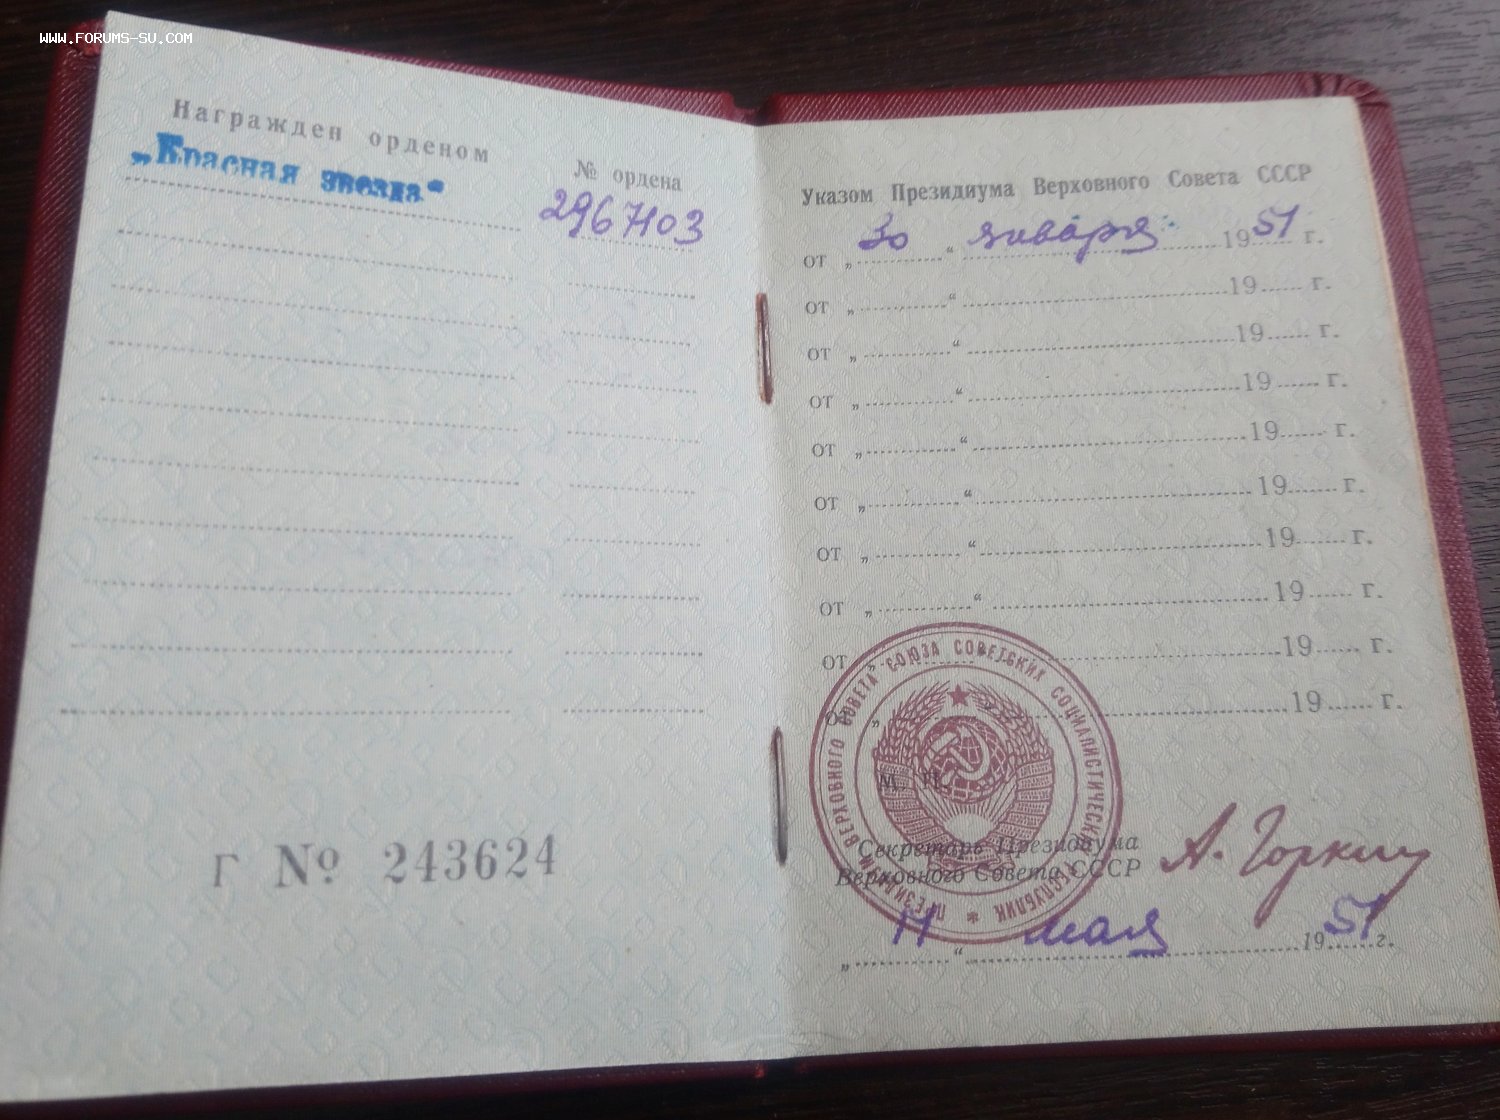 www.forums-su.com
Награжден орденом
„Красная звезда“
№ ордена
2967403
Г № 243624
Указом Президиума Верховного Совета СССР
от „ 30 “ января 1951 г.
от „ “ 19 г.
от „ “ 19 г.
от „ “ 19 г.
от „ “ 19 г.
от „ “ 19 г.
от „ “ 19 г.
от „ “ 19 г.
от „ “ 19 г.
от „ “ 19 г.
ПРЕЗИДИУМ ВЕРХОВНОГО СОВЕТА СОЮЗА СОВЕТСКИХ СОЦИАЛИСТИЧЕСКИХ РЕСПУБЛИК
М. П.
Секретарь Президиума
Верховного Совета СССР
А. Горкин
„ 11 “ мая 1951 г.